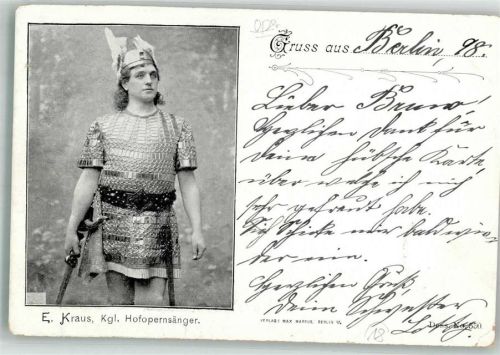 Gruss aus Berlin, 98.
Lieber Bruno!
Herzlichen Dank für
deine hübsche Karte,
über welche ich mich
sehr gefreut habe.
Schicke mir bald wie-
der ein.
Herzlichen Gruß
Deine Schwester
E. Kraus, Kgl. Hofopernsänger.
VERLAG: MAX MARCUS, BERLIN W.
18